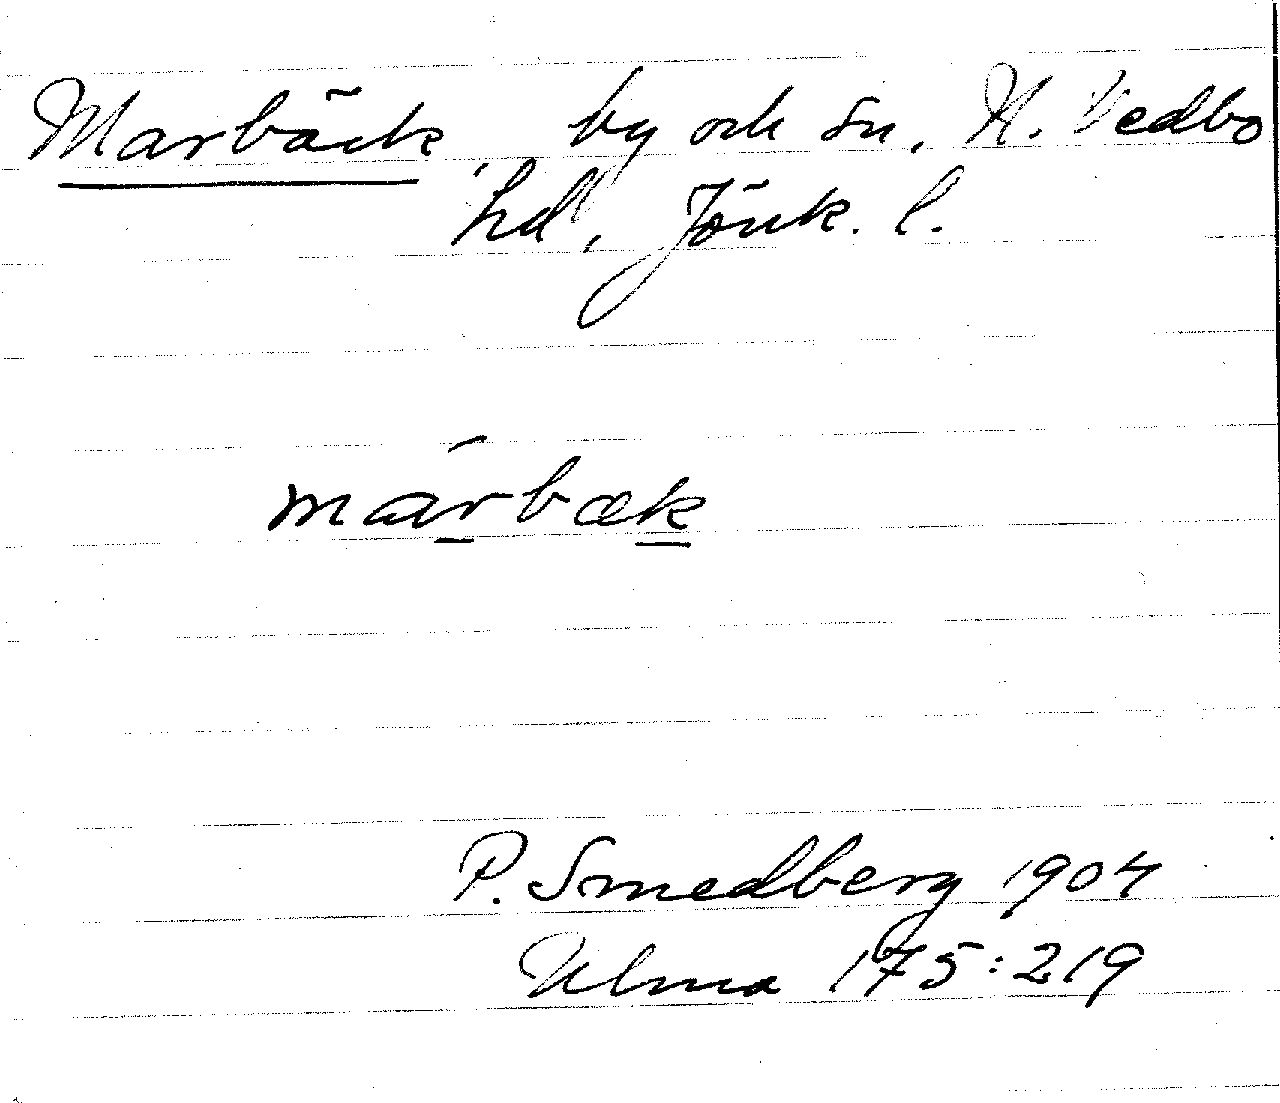 Marbäck, by och sn, N. Vedbo
hd, Jönk. l.
márbæk
P. Smedberg 1904
Ulma 175:219